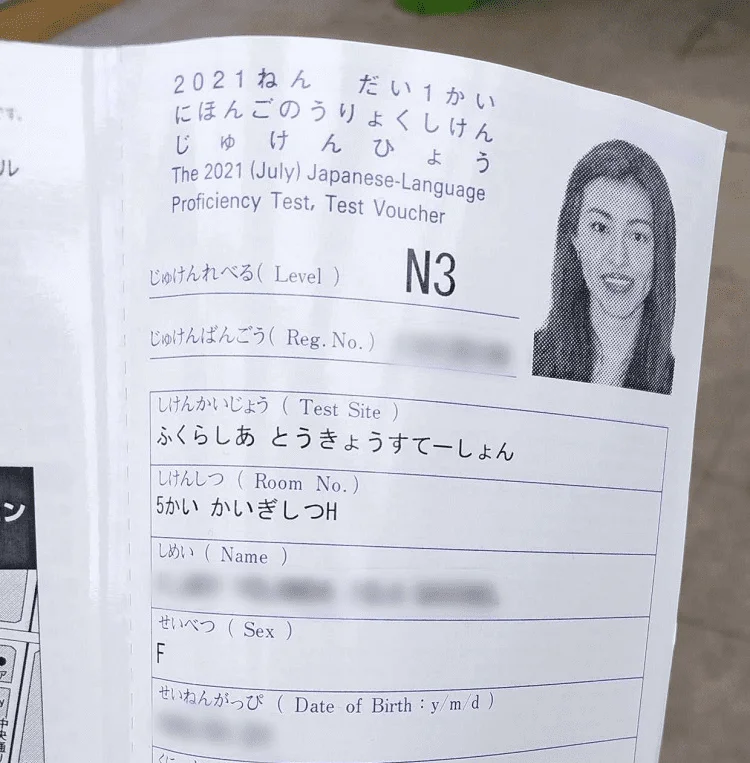 2021ねん だい1かい
にほんごのうりょくしけん
じゅけんひょう
The 2021 (July) Japanese-Language
Proficiency Test, Test Voucher
じゅけんれべる( Level )
N3
じゅけんばんごう( Reg. No. )
しけんかいじょう ( Test Site )
ふくらしあ とうきょうすてーしょん
しけんしつ ( Room No. )
5かい かいぎしつH
しめい ( Name )
せいべつ ( Sex )
F
せいねんがっぴ ( Date of Birth : y/m/d )
です。
ル
ン
ア
y
中央通り